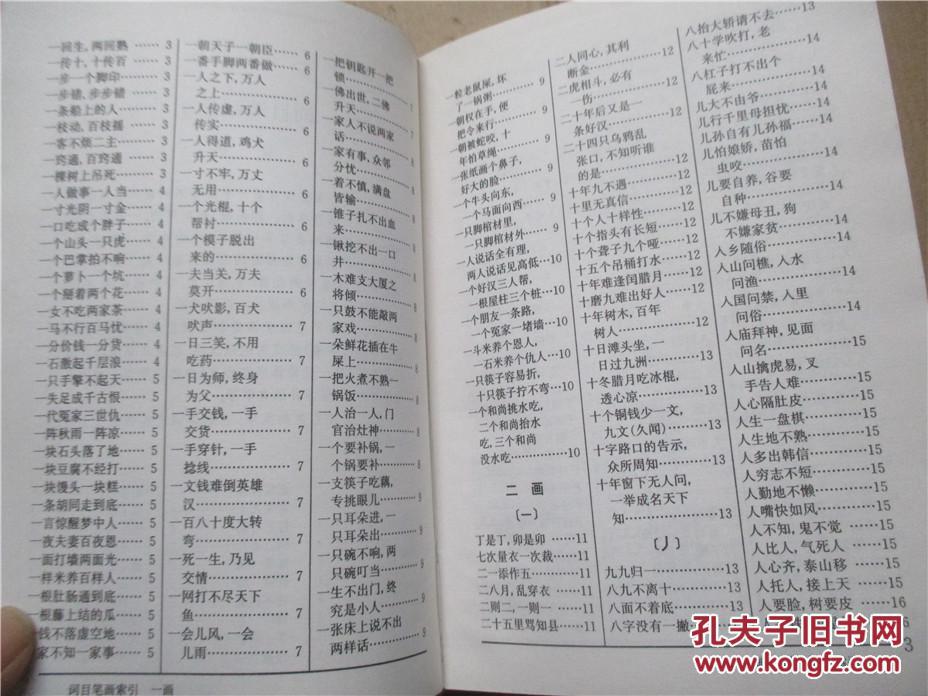 一回生,两回熟 …… 3
一传十,十传百 …… 3
一步一个脚印 …… 3
一步错,步步错 …… 3
一条船上的人 …… 3
一枝动,百枝摇 …… 3
一客不烦二主 …… 3
一窍通,百窍通 …… 4
一棵树上吊死 …… 4
一人做事一人当 …… 4
一寸光阴一寸金 …… 4
一口吃成个胖子 …… 4
一个山头一只虎 …… 4
一个巴掌拍不响 …… 4
一个萝卜一个坑 …… 4
一个掰着两个花 …… 4
一女不吃两家茶 …… 4
一马不行百马忧 …… 4
一分价钱一分货 …… 4
一石激起千层浪 …… 4
一只手擎不起天 …… 5
一失足成千古恨 …… 5
一代冤家三世仇 …… 5
一阵秋雨一阵凉 …… 5
一块石头落了地 …… 5
一块豆腐不经打 …… 5
一块馒头一块糕 …… 5
一条胡同走到底 …… 5
一言惊醒梦中人 …… 5
一夜夫妻百夜恩 …… 5
一面打墙两面光 …… 5
一样米养百样人 …… 5
一根肚肠通到底 …… 5
一根藤上结的瓜 …… 5
一钱不落虚空地 …… 5
家不知一家事 …… 5
一朝天子一朝臣 …… 6
一番手脚两番做 …… 6
一人之下,万人
之上 …… 6
一人传虚,万人
传实 …… 6
一人得道,鸡犬
升天 …… 6
一寸不牢,万丈
无用 …… 6
一个光棍,十个
帮衬 …… 6
一个模子脱出
来的 …… 6
一夫当关,万夫
莫开 …… 6
一犬吠影,百犬
吠声 …… 7
一日三笑,不用
吃药 …… 7
一日为师,终身
为父 …… 7
一手交钱,一手
交货 …… 7
一手穿针,一手
捻线 …… 7
一文钱难倒英雄
汉 …… 7
一百八十度大转
弯 …… 7
一死一生,乃见
交情 …… 7
一网打不尽天下
鱼 …… 7
一会儿风,一会
儿雨 …… 7
一把钥匙开一把
锁 …… 7
一佛出世,二佛
升天 ……
一家人不说两家
话 ……
一家有事,众邻
分忧 ……
一着不慎,满盘
皆输 ……
一锥子扎不出血
来 ……
一锹挖不出一口
井 ……
一木难支大厦之
将倾 ……
一只鼓不能敲两
家戏 ……
一朵鲜花插在牛
屎上 …… 8
一把火煮不熟一
锅饭 …… 8
一人治一人,门
官治灶神 …… 8
一个要补锅,一
个锅要补 …… 8
一支筷子吃藕,
专挑眼儿 …… 8
一只耳朵进,一
只耳朵出 …… 9
一只碗不响,两
只碗叮当 …… 9
一生不出门,终
究是小人 …… 9
一张床上说不出
两样话 …… 9
词目笔画索引 一画
一粒老鼠屎,坏
了一锅粥 …… 9
一朝权在手,便
把令来行 …… 9
一朝被蛇咬,十
年怕草绳 …… 9
一张纸画个鼻子,
好大的脸 …… 9
一个牛头向东,
一个马面向西 …… 9
一只脚棺材里,
一只脚棺材外 …… 9
一人说话全有理,
两人说话见高低 …… 10
一个好汉三人帮,
一根屋柱三个桩 …… 10
一个朋友一条路,
一个冤家一堵墙 …… 10
一斗米养个恩人,
一石米养个仇人 …… 10
一只筷子容易折,
十只筷子拧不弯 …… 10
一个和尚挑水吃,
二个和尚抬水
吃,三个和尚
没水吃 …… 10
二 画
〔一〕
丁是丁,卯是卯 …… 11
七次量衣一次裁 …… 11
二一添作五 …… 11
二八月,乱穿衣 …… 11
二则二,一则一 …… 11
二十五里骂知县 …… 11
二人同心,其利
断金 …… 12
二虎相斗,必有
一伤 …… 12
二十年后又是一
条好汉 …… 12
二十四只乌鸦乱
张口,不知听谁
的是 …… 12
十年九不遇 …… 12
十里无真信 …… 12
十个人十样性 …… 12
十个指头有长短 …… 12
十个聋子九个哑 …… 12
十五个吊桶打水 …… 12
十年难逢闰腊月 …… 12
十磨九难出好人 …… 12
十年树木,百年
树人 …… 12
十日滩头坐,一
日过九洲 …… 13
十冬腊月吃冰棍,
透心凉 …… 13
十个铜钱少一文,
九文(久闻) …… 13
十字路口的告示,
众所周知 …… 13
十年窗下无人问,
一举成名天下
知 …… 13
〔丿〕
九九归一 …… 13
八九不离十 …… 13
八面不着底 …… 13
八字没有一撇 …… 13
八抬大轿请不去 …… 13
八十学吹打,老
来忙 …… 13
八杠子打不出个
屁来 …… 13
儿大不由爷 …… 14
儿行千里母担忧 …… 14
儿孙自有儿孙福 …… 14
儿怕娘娇,苗怕
虫咬 …… 14
儿要自养,谷要
自种 …… 14
儿不嫌母丑,狗
不嫌家贫 …… 14
人乡随俗 …… 14
人山问樵,人水
问渔 …… 14
人国问禁,人里
问俗 …… 14
人庙拜神,见面
问名 …… 14
人山擒虎易,叉
手告人难 …… 15
人心隔肚皮 …… 15
人生一盘棋 …… 15
人生地不熟 …… 15
人多出韩信 …… 15
人穷志不短 …… 15
人勤地不懒 …… 15
人嘴快如风 …… 15
人不知,鬼不觉 …… 15
人比人,气死人 …… 15
人心齐,泰山移 …… 15
人托人,接上天 …… 15
人要脸,树要皮 …… 16
3
孔夫子旧书网